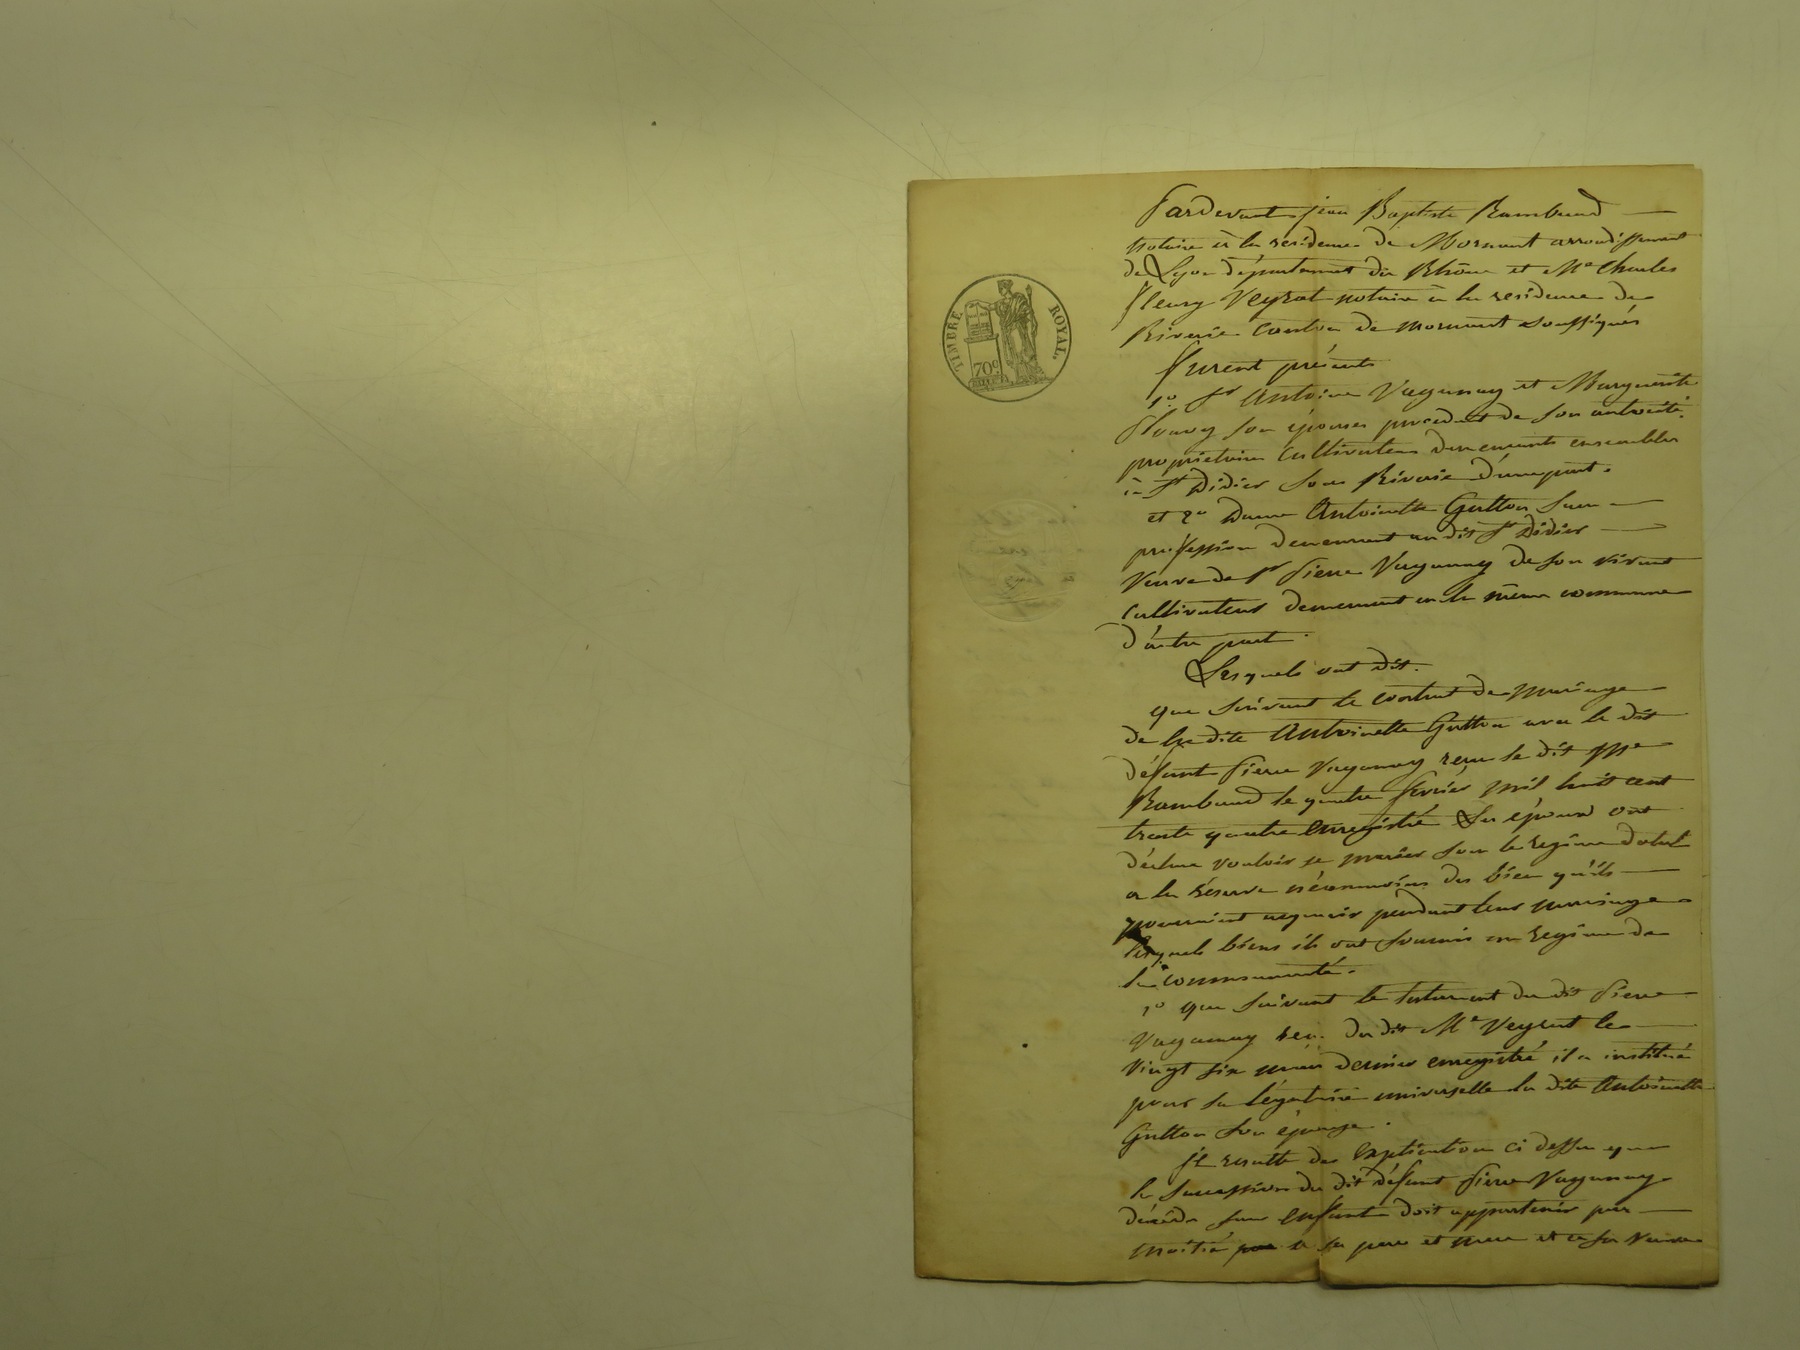 TIMBRE ROYAL
70c
Pardevant jean Baptiste Rambaud
Notaire à la residence de Mornant arrondissement
de Lyon département du Rhône et Me Charles
fleury Veyrat notaire à la residence de
Riverie Canton de Mornant soussignés
furent présents
1º Sr Antoine Vaganay et Marguerite
son épouse procedant de son autorité
propriétaires Cultivateurs demeurants ensembles
à St Didier sous Riverie d'une part.
et 2º Dame Antoinette Gutton sans
profession demeurant au dit St Didier
Veuve de Sr Pierre Vaganay de son vivant
Cultivateur demeurant en la même commune
d'autre part.
Lesquels ont dit.
que suivant le contrat de Mariage
de la dite Antoinette Gutton avec le dit
défunt Pierre Vaganay reçu le dit Me
Rambaud le quatre février mil huit cent
trente quatre enregistré Les époux ont
déclaré vouloir se marier sous le regime dotal
a la réserve néanmoins des bien qu'ils
pouraient acquerir pendant leur mariage
lesquels biens ils ont soumis au regime de
la communauté.
1º que suivant le testament du dit Pierre
Vaganay reçu du dit Me Veyrat le
Vingt six mars dernier enregistré il a institué
pour sa légataire universelle la dite Antoinette
Gutton son épouse.
Il resulte des explication ci dessu que
la succession du dit défunt Pierre Vaganay
décédé sans enfant doit appartenir par
moitié a sa pere et mere et a sa Veuve